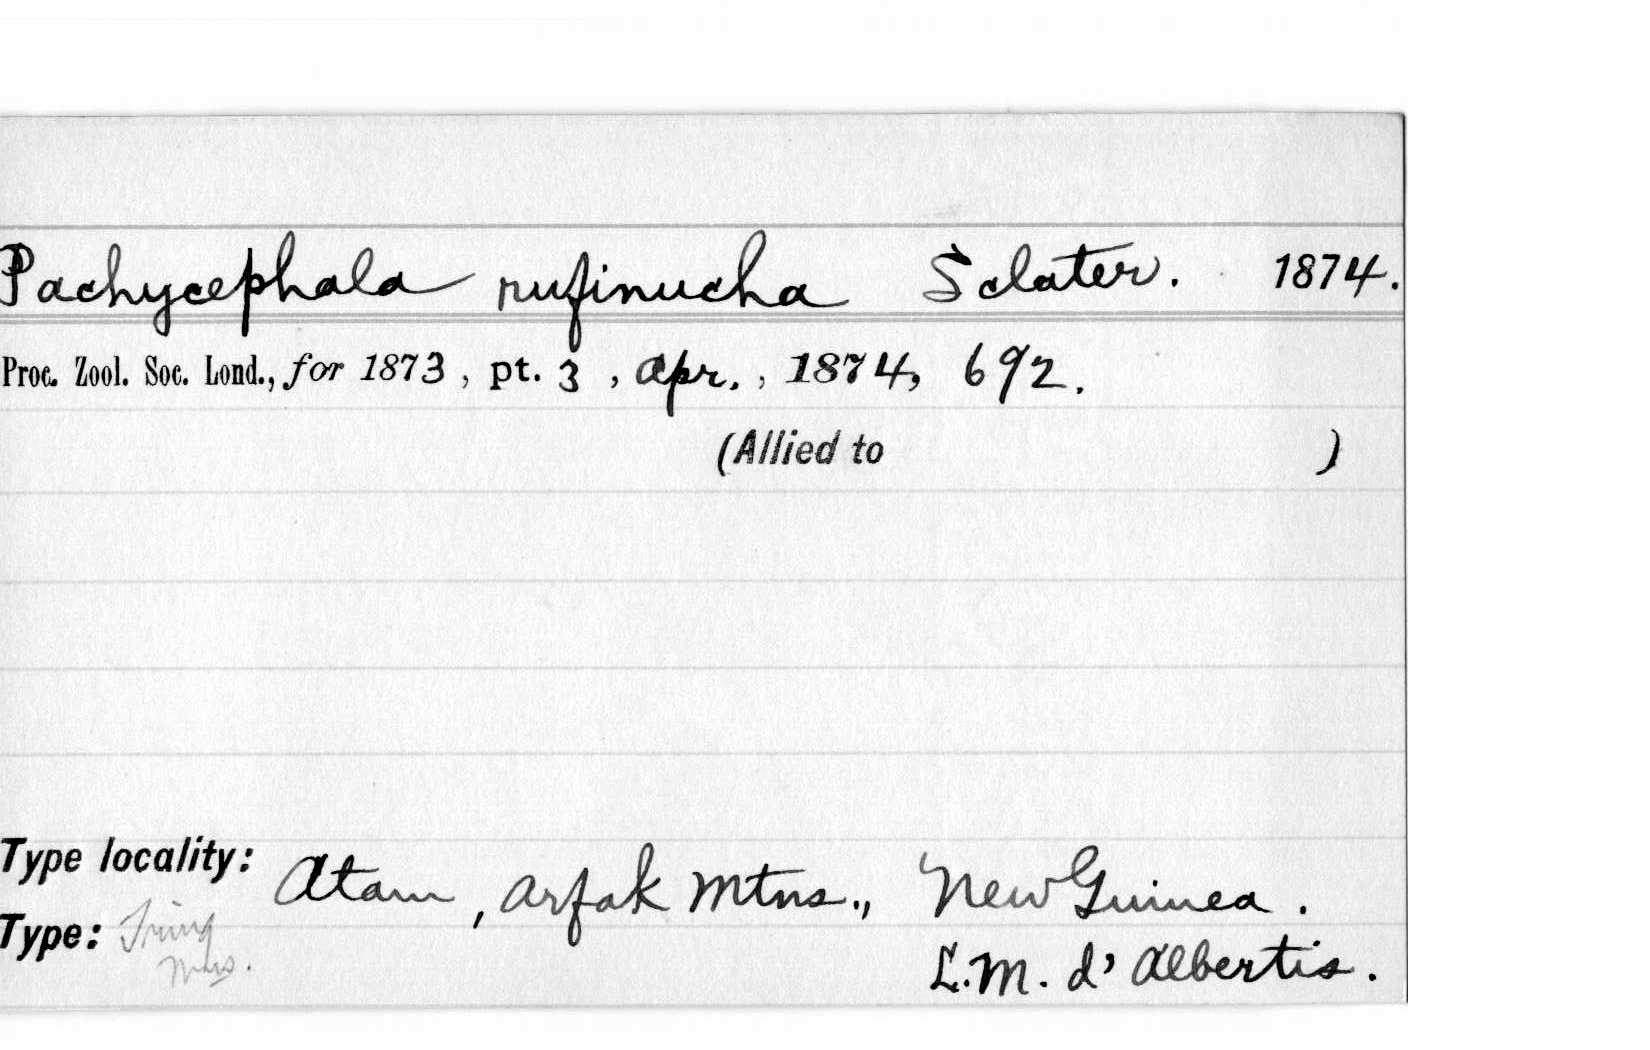 Pachycephala rufinucha Sclater. 1874.
Proc. Zool. Soc. Lond., for 1873, pt. 3, Apr., 1874, 692.
(Allied to )
Type locality: Atam, Arfak Mtns., New Guinea.
Type: Tring Mus.
L.M. d'Albertis.